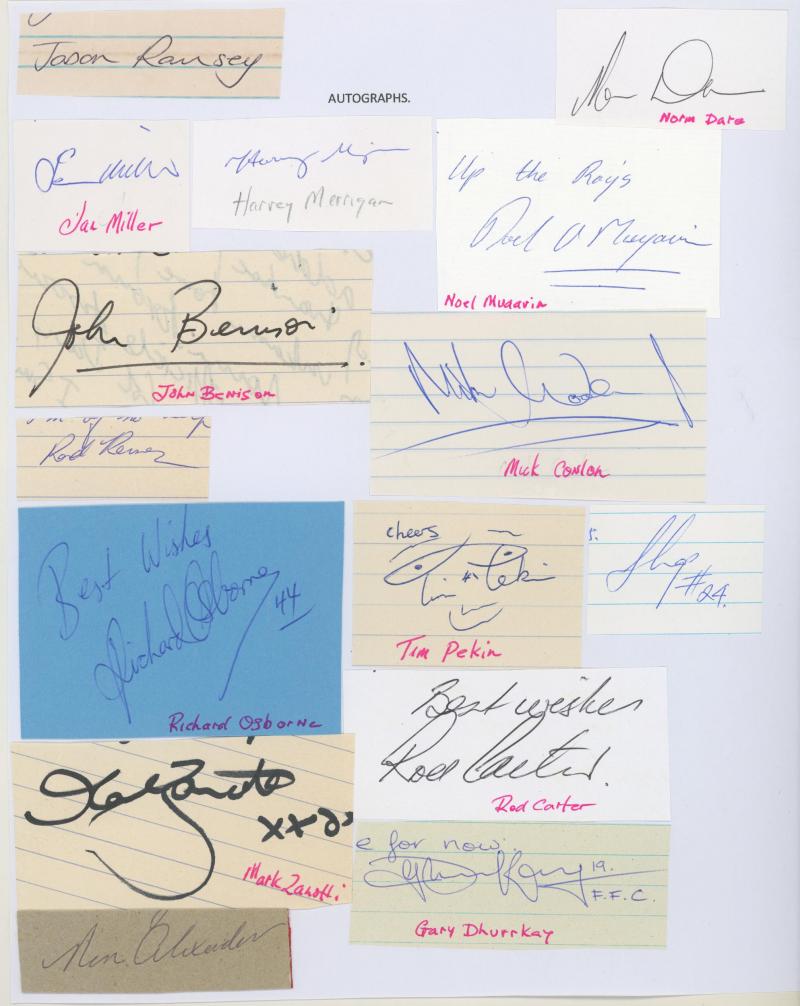 Jason Ramsey
AUTOGRAPHS.
Norm Dare
Ian Miller
Harvey Merrigan
Up the Roy's
Noel Mugavin
Noel Mugavin
John Benison
John Benison
Mick Conlon
Mick Conlon
Rod
Best Wishes
Richard Osborne 44
Richard Osborne
cheers
Tim Pekin
Tim Pekin
#24.
Best wishes
Rod Carter.
Rod Carter
Mark Zanotti
e for now.
19.
F.F.C.
Gary Dhurrkay
Alexander